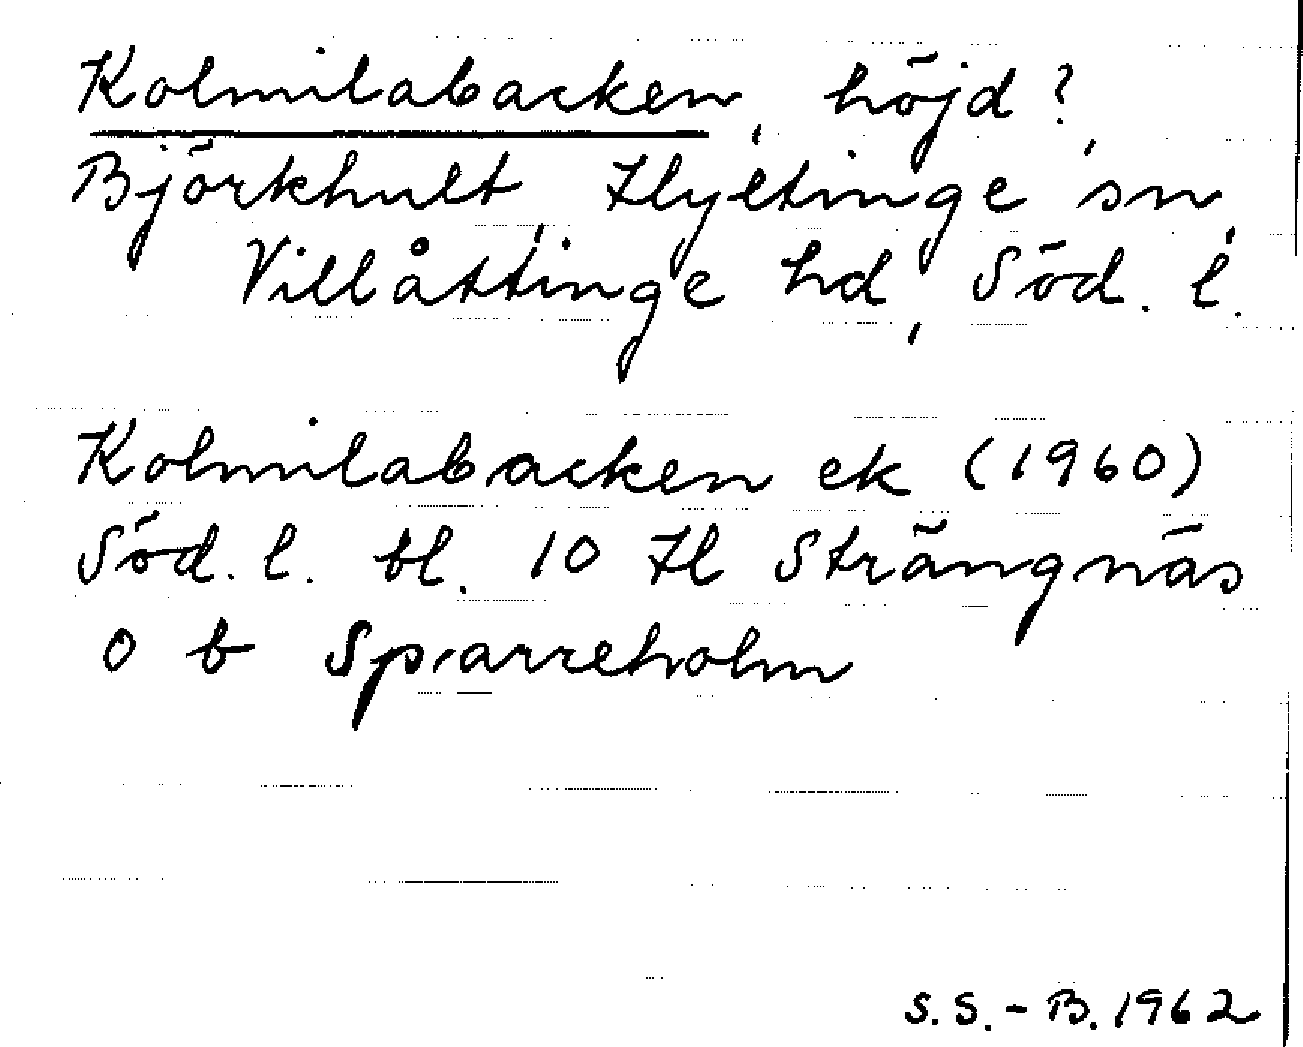 Kolmilabacken, höjd?,
Björkhult, Hyltinge sn,
Villåttinge hd, Söd. l.
Kolmilabacken ek (1960)
Söd. l. bl. 10 Hl Strängnäs
O b Sparreholm
S. S. - B. 1962